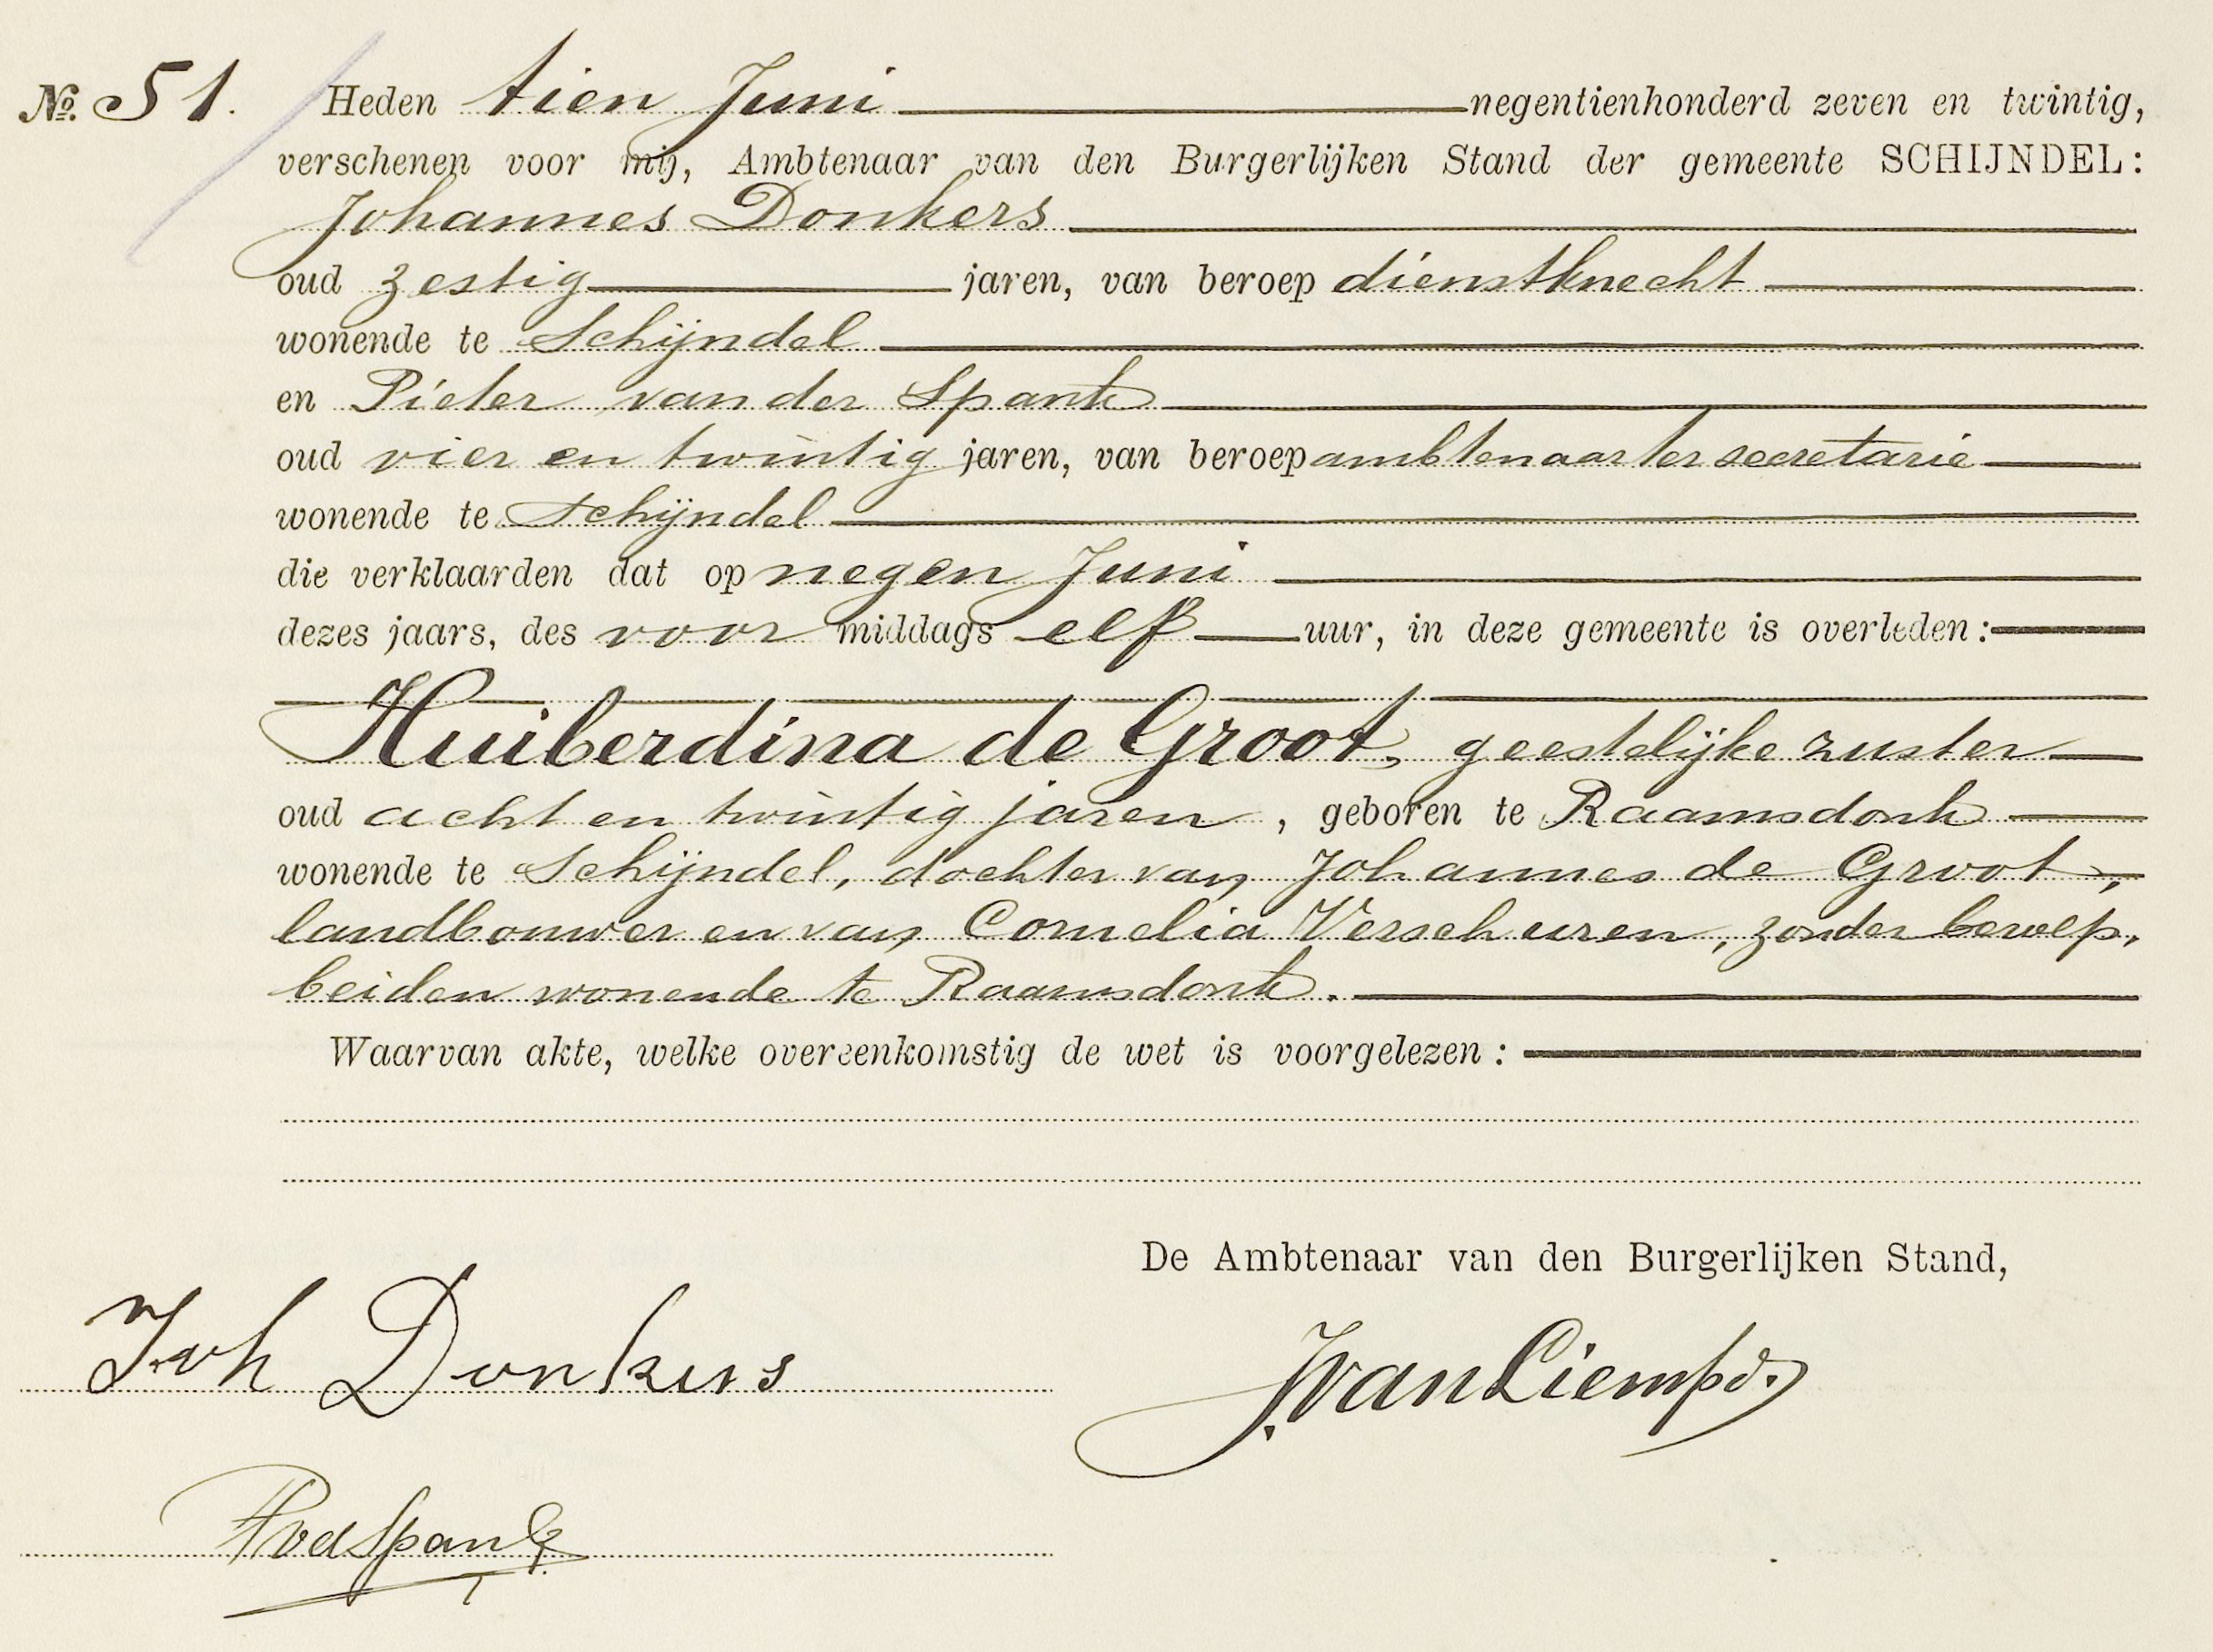 No. 51. Heden tien Juni negentienhonderd zeven en twintig,
verschenen voor mij, Ambtenaar van den Burgerlijken Stand der gemeente SCHIJNDEL:
Johannes Donkers
oud zestig jaren, van beroep dienstknecht
wonende te Schijndel
en Pieter van der Spank
oud vier en twintig jaren, van beroep ambtenaar ter secretarie
wonende te Schijndel
die verklaarden dat op negen Juni
dezes jaars, des voor middags elf uur, in deze gemeente is overleden:
Huiberdina de Groot, geestelijke zuster
oud acht en twintig jaren, geboren te Raamsdonk
wonende te Schijndel, dochter van Johannes de Groot,
landbouwer en van Cornelia Verschuren, zonder beroep,
beiden wonende te Raamsdonk.
Waarvan akte, welke overeenkomstig de wet is voorgelezen:
De Ambtenaar van den Burgerlijken Stand,
Joh Donkers
J. van Liempd.
PvdSpank